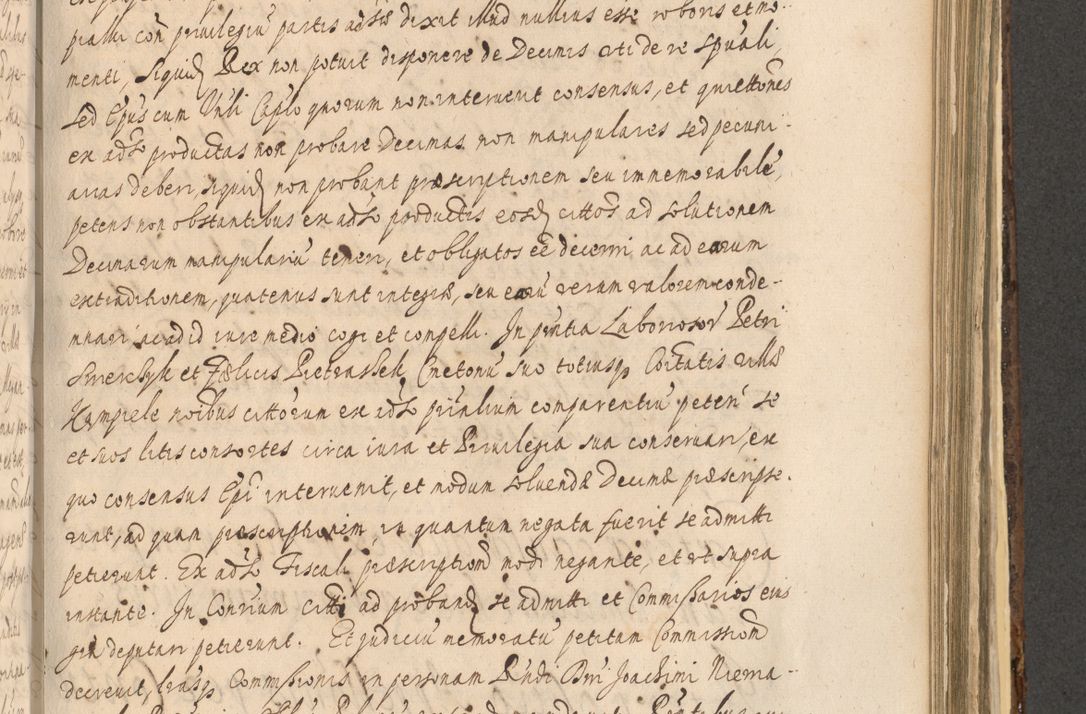 pialli con priuilegiu partis adsae dixit illud nullius esse roboris et mo-
menti, siquid Rex non potuit disponere de Decimis uti de re spuali,
sed Epus cum Vnli Caplo quorum non interuenit consensus, et quiettones
ex adso productas non probare Decimas non manipulares sed pecuni-
arias deberi, siquid non probant praescriptionem seu immemorabile,
petens non obstantibus ex adso productis eosd cittos ad solutionem
Decimarum manipulariu teneri, et obligatos ee decerni ac ad earum
extraditionem, quatenus sunt integrae, seu earu verum valorem conde-
mnari ac ad id iure medio cogi et conpelli. In pntia Laboriosor Petri
Smerchyk et Faelicis Pietrassek Cmetonu suo totiusq Coitatis villae
noibus cittorum ex adso prinlium comparentiu peteri se
et suos litis consortes circa iura et Priuilegia sua conseruari, ex
quo consensus Epi interuenit, et modum soluendae Decimae praescripse-
runt, ad quam praescriptionem, in quantum negata fuerit se admitti
petierunt. Ex adso Fiscali praescription modi negante, et ut supra
instante. In Conrium citti ad proband se admitti et Commissarios eius
gra deputari petierunt. Et judiciu memoratu petitam Commission
decreuit, huiusq Commissionis in personam Rndi Dni Joachimi Niema-